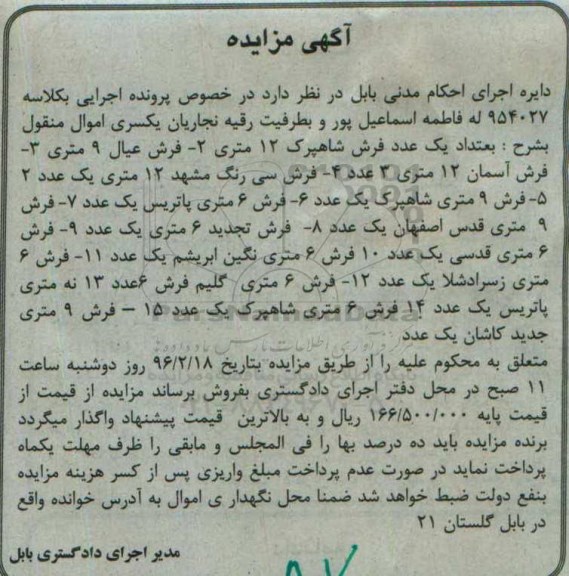 آگهی مزایده
دایره اجرای احکام مدنی بابل در نظر دارد در خصوص پرونده اجرایی بکلاسه
۹۵۴۰۲۷ له فاطمه اسماعیل پور و بطرفیت رقیه نجاریان یکسری اموال منقول
بشرح : بعتداد یک عدد فرش شاهپرک ۱۲ متری ۲- فرش عیال ۹ متری ۳-
فرش آسمان ۱۲ متری ۳ عدد ۴- فرش سی رنگ مشهد ۱۲ متری یک عدد ۲
۵- فرش ۹ متری شاهپرک یک عدد ۶- فرش ۶ متری پاتریس یک عدد ۷- فرش
۹ متری قدس اصفهان یک عدد ۸- فرش تجدید ۶ متری یک عدد ۹- فرش
۶ متری قدسی یک عدد ۱۰ فرش ۶ متری نگین ابریشم یک عدد ۱۱- فرش ۶
متری زسرادشلا یک عدد ۱۲- فرش ۶ متری گلیم فرش ۶عدد ۱۳ نه متری
پاتریس یک عدد ۱۴ فرش ۶ متری شاهپرک یک عدد ۱۵ – فرش ۹ متری
جدید کاشان یک عدد
متعلق به محکوم علیه را از طریق مزایده بتاریخ ۹۶/۲/۱۸ روز دوشنبه ساعت
۱۱ صبح در محل دفتر اجرای دادگستری بفروش برساند مزایده از قیمت از
قیمت پایه ۱۶۶/۵۰۰/۰۰۰ ریال و به بالاترین قیمت پیشنهاد واگذار میگردد
برنده مزایده باید ده درصد بها را فی المجلس و مابقی را ظرف مهلت یکماه
پرداخت نماید در صورت عدم پرداخت مبلغ واریزی پس از کسر هزینه مزایده
بنفع دولت ضبط خواهد شد ضمنا محل نگهدار ی اموال به آدرس خوانده واقع
در بابل گلستان ۲۱
مدیر اجرای دادگستری بابل
۸۷